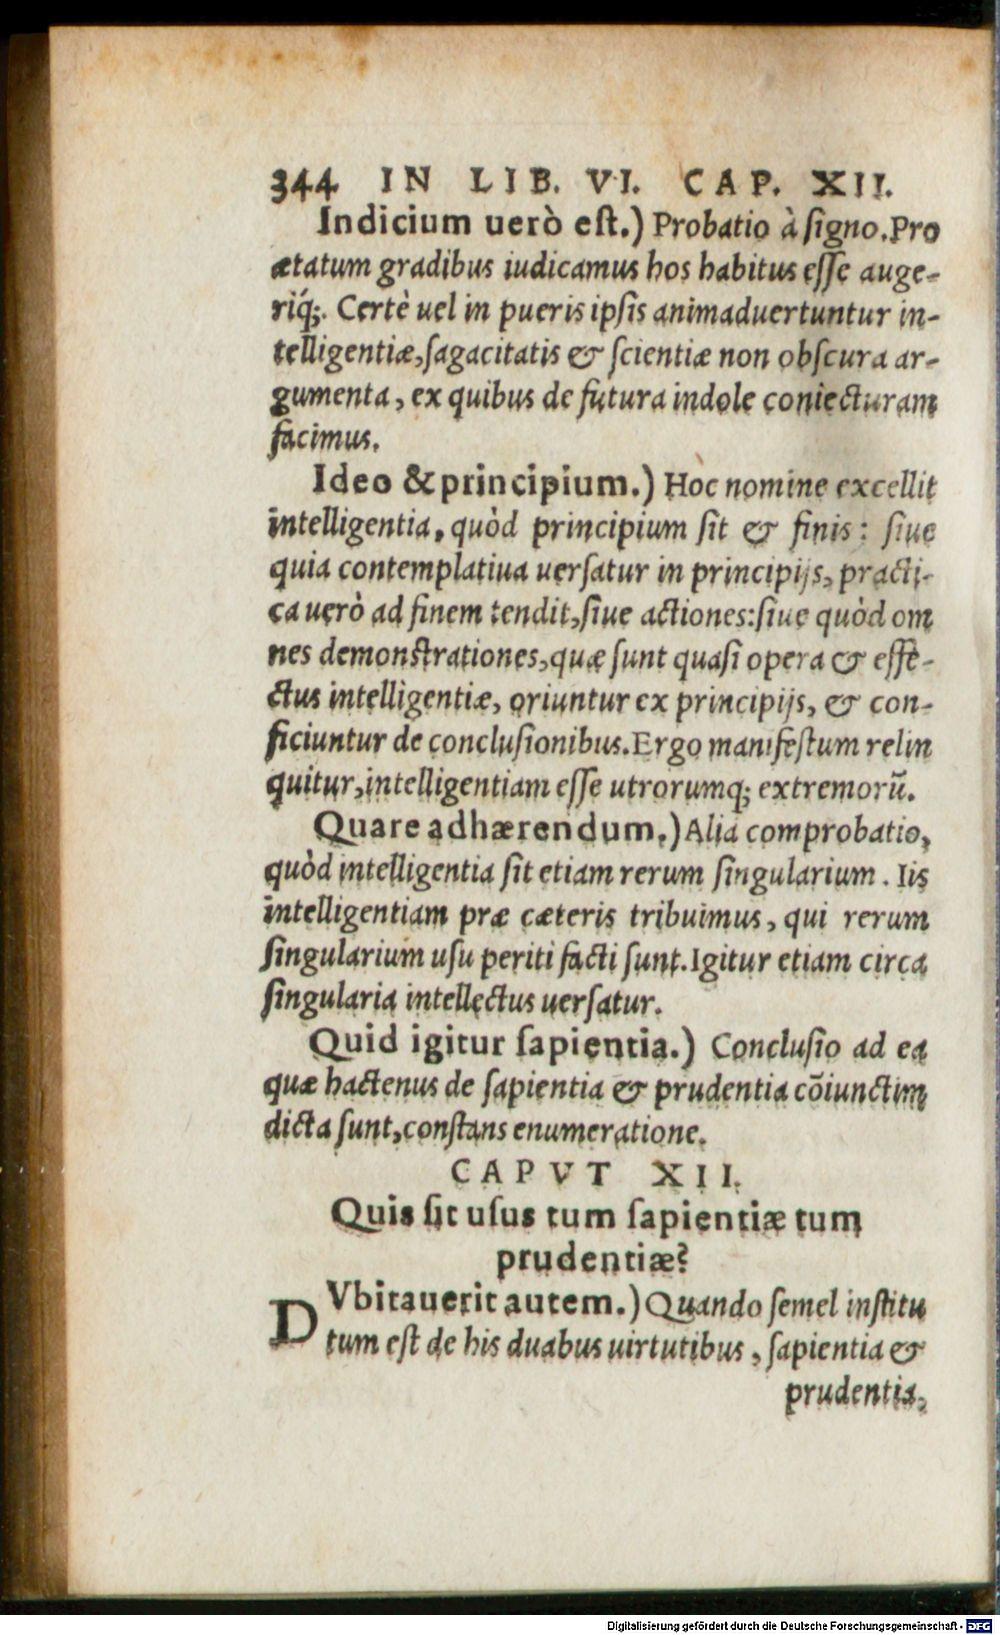 344 IN LIB. VI. CAP. XII.
Indicium uerò eſt.) Probatio à ſigno. Pro
ætatum gradibus iudicamus hos habitus eſſe auge-
riq́;. Certè uel in pueris ipſis animaduertuntur in-
telligentiæ, ſagacitatis & ſcientiæ non obſcura ar-
gumenta, ex quibus de futura indole coniecturam
facimus.
Ideo & principium.) Hoc nomine excellit
intelligentia, quòd principium ſit & finis: ſiue
quia contemplatiua uerſatur in principijs, practi-
ca uerò ad finem tendit, ſiue actiones: ſiue quòd om
nes demonſtrationes, quæ ſunt quaſi opera & effe-
ctus intelligentiæ, oriuntur ex principijs, & con-
ficiuntur de concluſionibus. Ergo manifeſtum relin
quitur, intelligentiam eſſe utrorumq; extremorũ.
Quare adhærendum.) Alia comprobatio,
quòd intelligentia ſit etiam rerum ſingularium. Iis
intelligentiam præ cæteris tribuimus, qui rerum
ſingularium uſu periti facti ſunt. Igitur etiam circa
ſingularia intellectus uerſatur.
Quid igitur ſapientia.) Concluſio ad ea
quæ hactenus de ſapientia & prudentia cõiunctim
dicta ſunt, conſtans enumeratione.
CAPVT XII.
Quis ſit uſus tum ſapientiæ tum
prudentiæ?
DVbitauerit autem.) Quando ſemel inſtitu
tum eſt de his duabus uirtutibus, ſapientia &
prudentia,
Digitalisierung gefördert durch die Deutsche Forschungsgemeinschaft - DFG